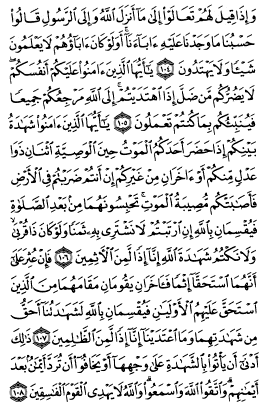 وَإِذَا قِيلَ لَهُمْ تَعَالَوْا۟ إِلَىٰ مَآ أَنزَلَ ٱللَّهُ وَإِلَى ٱلرَّسُولِ قَالُوا۟
حَسْبُنَا مَا وَجَدْنَا عَلَيْهِ ءَابَآءَنَآ ۚ أَوَلَوْ كَانَ ءَابَآؤُهُمْ لَا يَعْلَمُونَ
شَيْـًٔا وَلَا يَهْتَدُونَ ١٠٤ يَـٰٓأَيُّهَا ٱلَّذِينَ ءَامَنُوا۟ عَلَيْكُمْ أَنفُسَكُمْ ۖ
لَا يَضُرُّكُم مَّن ضَلَّ إِذَا ٱهْتَدَيْتُمْ ۚ إِلَى ٱللَّهِ مَرْجِعُكُمْ جَمِيعًا
فَيُنَبِّئُكُم بِمَا كُنتُمْ تَعْمَلُونَ ١٠٥ يَـٰٓأَيُّهَا ٱلَّذِينَ ءَامَنُوا۟ شَهَـٰدَةُ
بَيْنِكُمْ إِذَا حَضَرَ أَحَدَكُمُ ٱلْمَوْتُ حِينَ ٱلْوَصِيَّةِ ٱثْنَانِ ذَوَا
عَدْلٍ مِّنكُمْ أَوْ ءَاخَرَانِ مِنْ غَيْرِكُمْ إِنْ أَنتُمْ ضَرَبْتُمْ فِى ٱلْأَرْضِ
فَأَصَـٰبَتْكُم مُّصِيبَةُ ٱلْمَوْتِ ۚ تَحْبِسُونَهُمَا مِنۢ بَعْدِ ٱلصَّلَوٰةِ
فَيُقْسِمَانِ بِٱللَّهِ إِنِ ٱرْتَبْتُمْ لَا نَشْتَرِى بِهِۦ ثَمَنًا وَلَوْ كَانَ ذَا قُرْبَىٰ ۙ
وَلَا نَكْتُمُ شَهَـٰدَةَ ٱللَّهِ إِنَّآ إِذًا لَّمِنَ ٱلْـَٔاثِمِينَ ١٠٦ فَإِنْ عُثِرَ عَلَىٰٓ
أَنَّهُمَا ٱسْتَحَقَّآ إِثْمًا فَـَٔاخَرَانِ يَقُومَانِ مَقَامَهُمَا مِنَ ٱلَّذِينَ
ٱسْتَحَقَّ عَلَيْهِمُ ٱلْأَوْلَيَـٰنِ فَيُقْسِمَانِ بِٱللَّهِ لَشَهَـٰدَتُنَآ أَحَقُّ
مِن شَهَـٰدَتِهِمَا وَمَا ٱعْتَدَيْنَآ إِنَّآ إِذًا لَّمِنَ ٱلظَّـٰلِمِينَ ١٠٧ ذَٰلِكَ
أَدْنَىٰٓ أَن يَأْتُوا۟ بِٱلشَّهَـٰدَةِ عَلَىٰ وَجْهِهَآ أَوْ يَخَافُوٓا۟ أَن تُرَدَّ أَيْمَـٰنٌۢ بَعْدَ
أَيْمَـٰنِهِمْ ۗ وَٱتَّقُوا۟ ٱللَّهَ وَٱسْمَعُوا۟ ۗ وَٱللَّهُ لَا يَهْدِى ٱلْقَوْمَ ٱلْفَـٰسِقِينَ ١٠٨